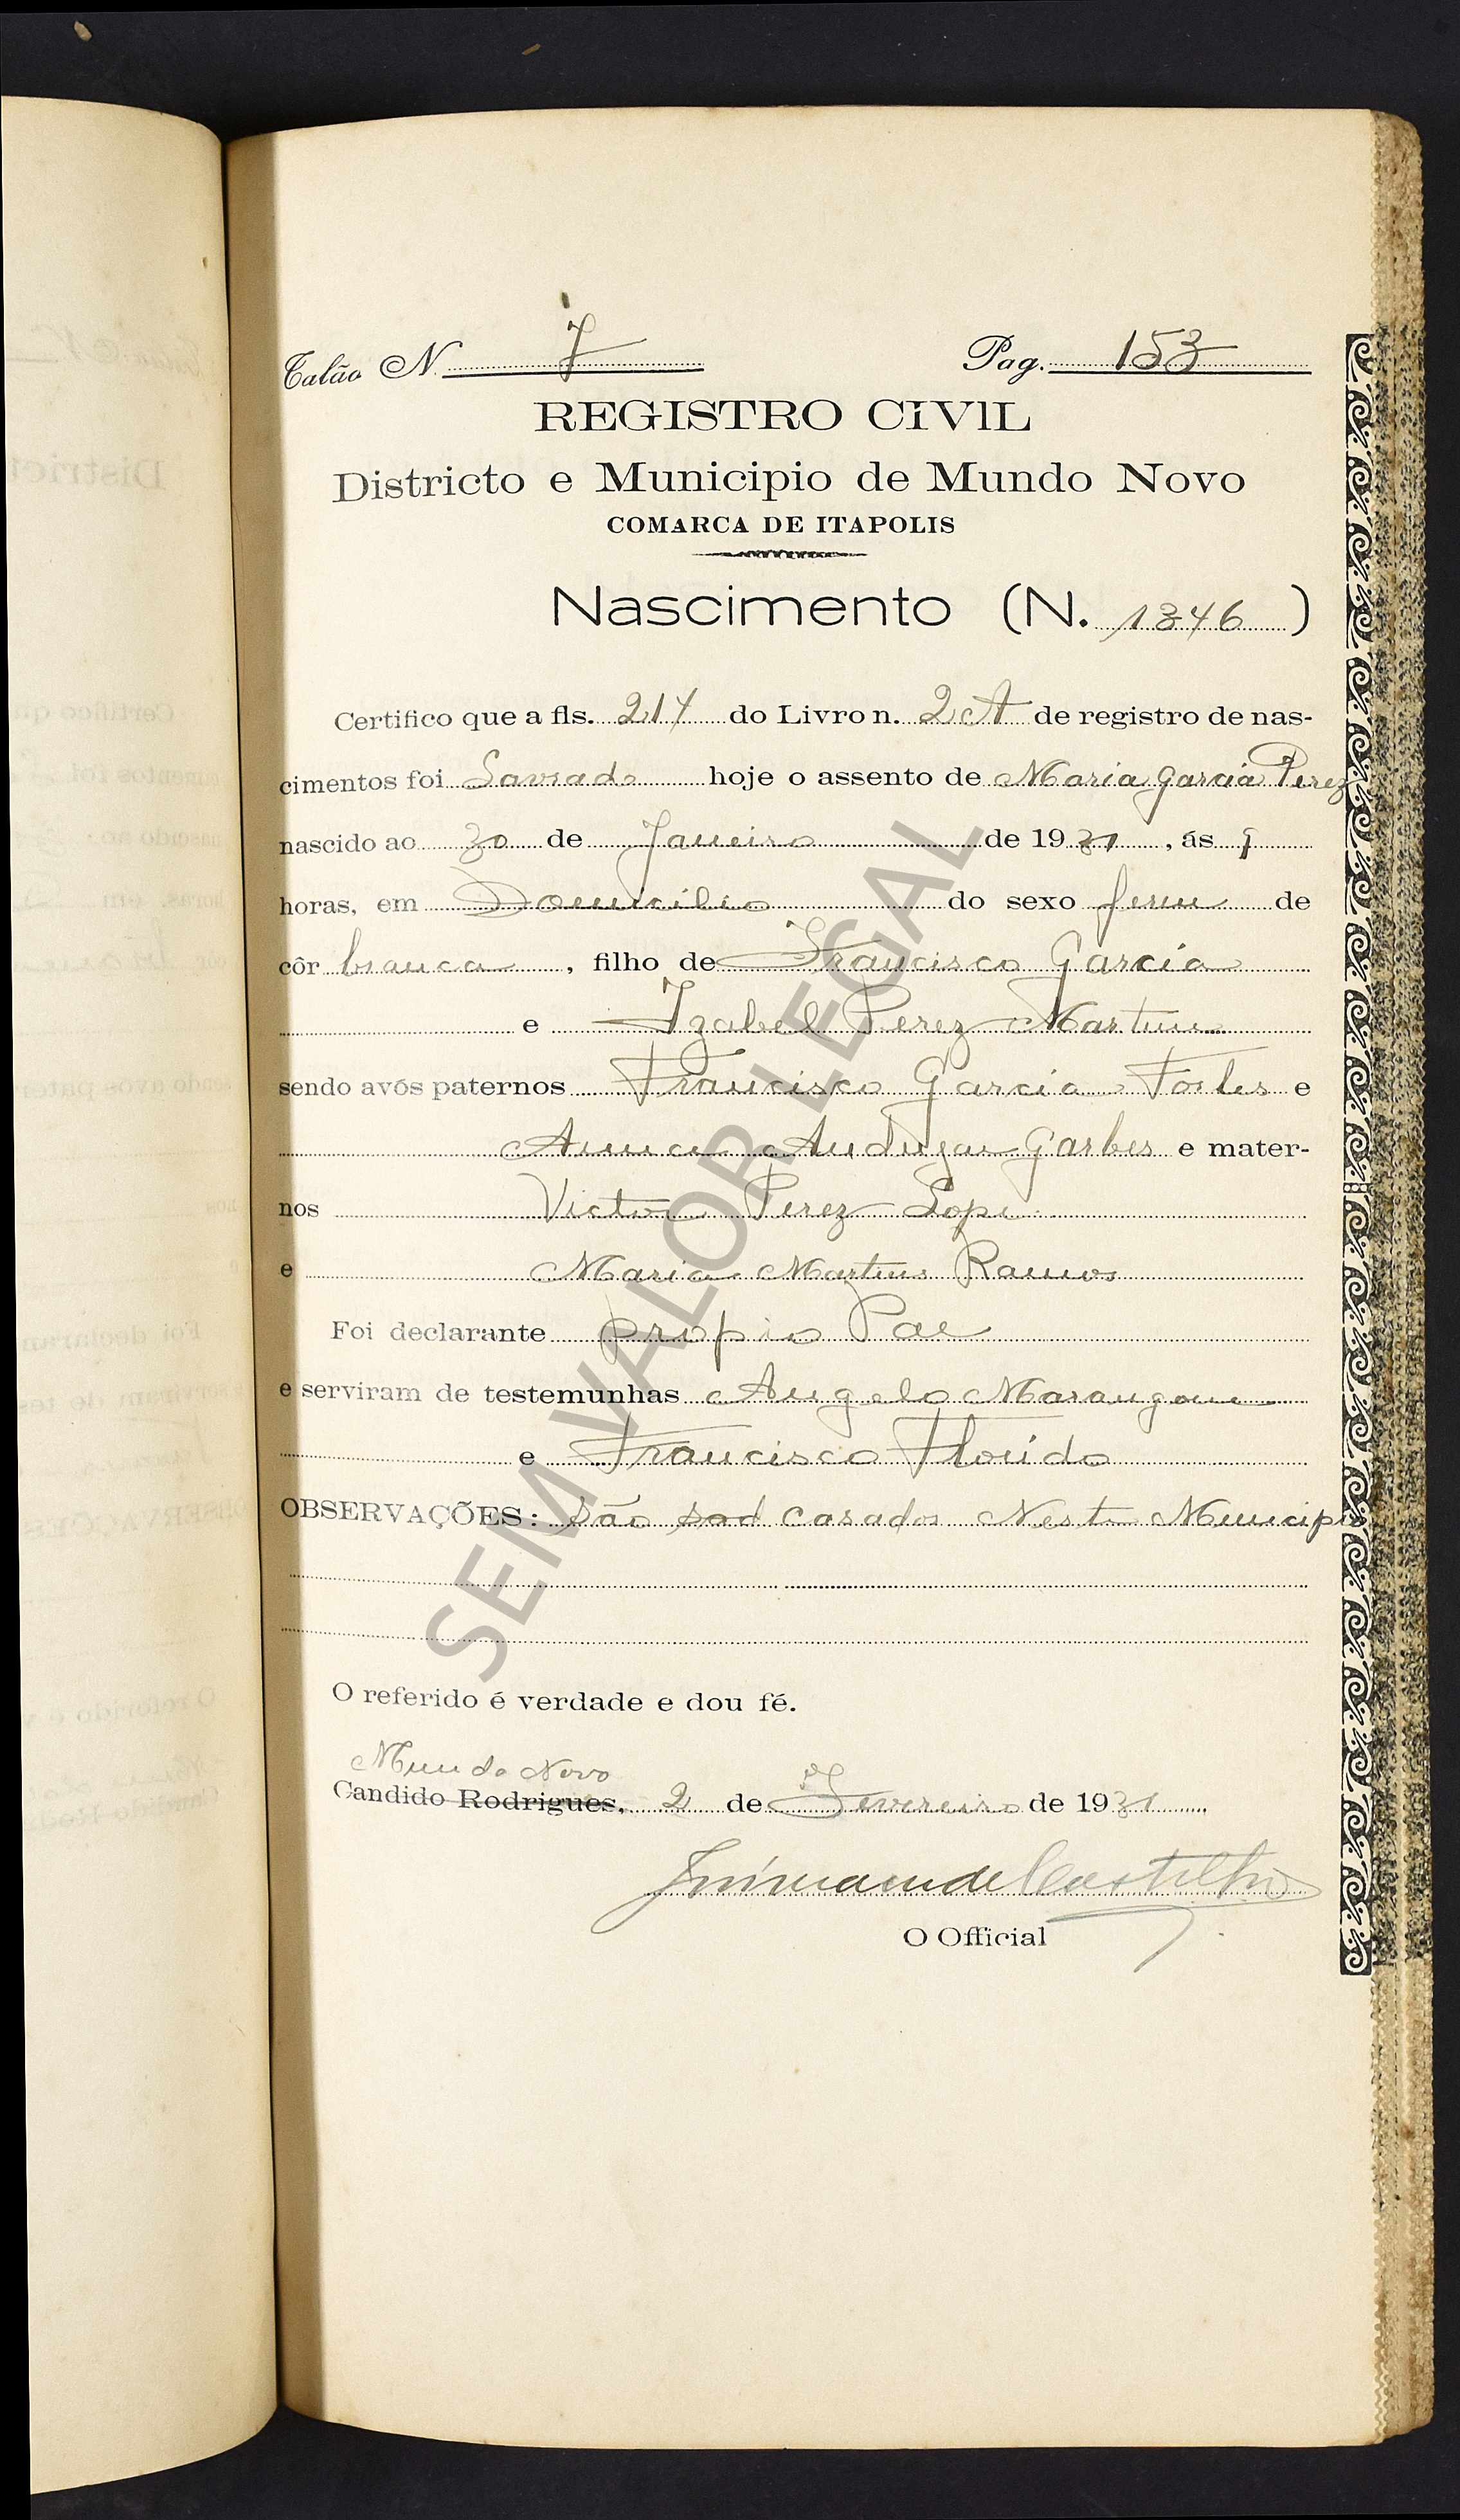 Talão N. 7 Pag. 153
REGISTRO CIVIL
Districto e Municipio de Mundo Novo
COMARCA DE ITAPOLIS
Nascimento (N. 1346)
Certifico que a fls. 217 do Livro n. 2 A de registro de nas-
cimentos foi Lavrado hoje o assento de Maria Garcia Perez
nascido ao 30 de Janeiro de 1931, ás 9
horas, em Domicilio do sexo fem de
côr branca, filho de Francisco Garcia
e Izabel Perez Martins
sendo avós paternos Francisco Garcia Fortes e
Anna Andujar Garbes e mater-
nos Victor Perez Lope
e Maria Martins Ramos
Foi declarante propio Pae
e serviram de testemunhas Angelo Marangoni
e Francisco Florido
OBSERVAÇÕES: São sad casados Neste Municipio
O referido é verdade e dou fé.
Mundo Novo
Candido Rodrigues, 2 de Fevereiro de 1931
de Castilho
O Official
SEM VALOR LEGAL